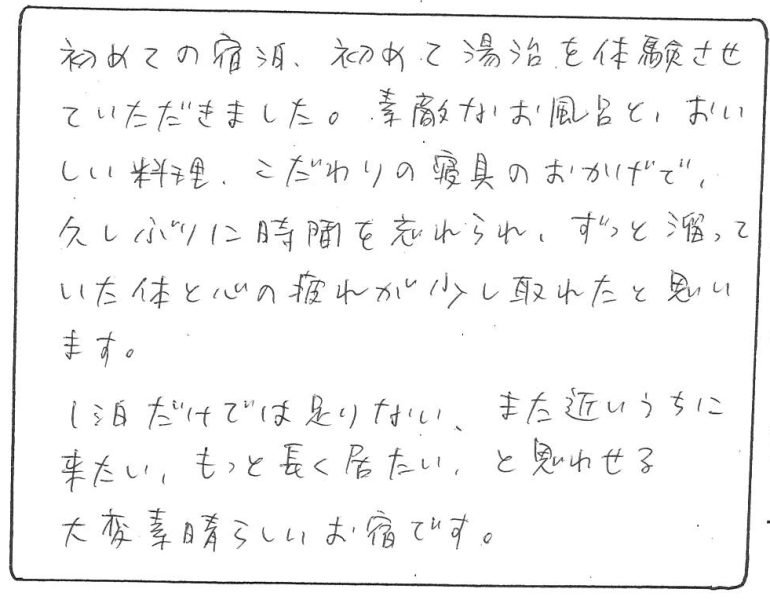 初めての宿泊、初めて湯治を体験させ
ていただきました。素敵なお風呂と、おい
しい料理、こだわりの寝具のおかげで、
久しぶりに時間を忘れられ、ずっと溜って
いた体と心の疲れが少し取れたと思い
ます。
1泊だけでは足りない、また近いうちに
来たい、もっと長く居たい、と思わせる
大変素晴らしいお宿です。